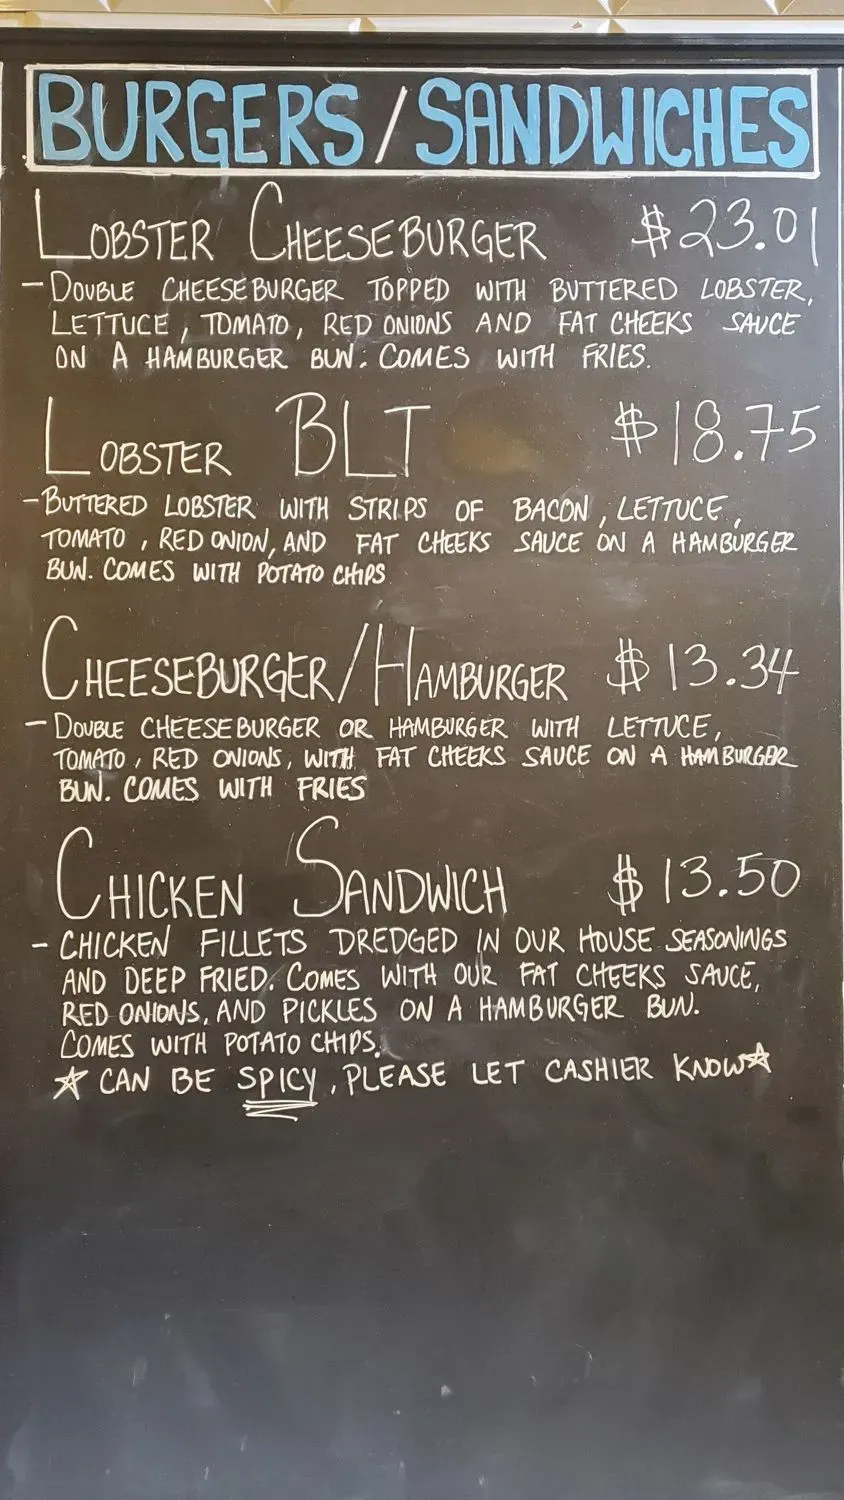 BURGERS/SANDWICHES
LOBSTER CHEESEBURGER $23.01
- DOUBLE CHEESEBURGER TOPPED WITH BUTTERED LOBSTER,
LETTUCE, TOMATO, RED ONIONS AND FAT CHEEKS SAUCE
ON A HAMBURGER BUN. COMES WITH FRIES.
LOBSTER BLT $18.75
- BUTTERED LOBSTER WITH STRIPS OF BACON, LETTUCE,
TOMATO, RED ONION, AND FAT CHEEKS SAUCE ON A HAMBURGER
BUN. COMES WITH POTATO CHIPS
CHEESEBURGER/HAMBURGER $13.34
- DOUBLE CHEESEBURGER OR HAMBURGER WITH LETTUCE,
TOMATO, RED ONIONS, WITH FAT CHEEKS SAUCE ON A HAMBURGER
BUN. COMES WITH FRIES
CHICKEN SANDWICH $13.50
- CHICKEN FILLETS DREDGED IN OUR HOUSE SEASONINGS
AND DEEP FRIED. COMES WITH OUR FAT CHEEKS SAUCE,
RED ONIONS, AND PICKLES ON A HAMBURGER BUN.
COMES WITH POTATO CHIPS.
☆ CAN BE SPICY, PLEASE LET CASHIER KNOW ☆